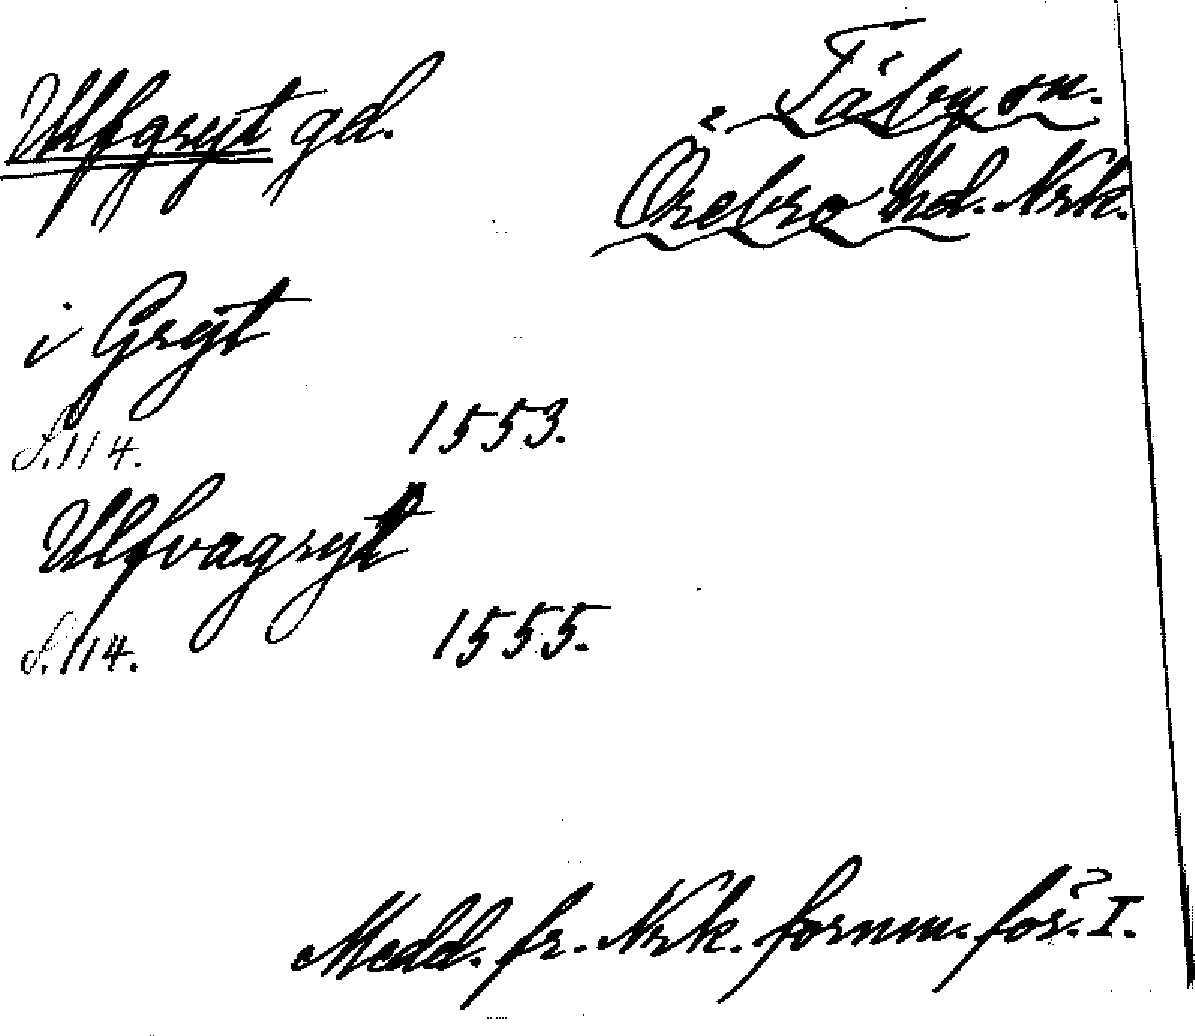 Ulfgryt gd.
Täby sn.
Örebro hd. Nrk.
i Gryt
S. 114. 1553.
Ulfvagryt
S. 114. 1555.
Medd. fr. Nrk. fornm. för. I.